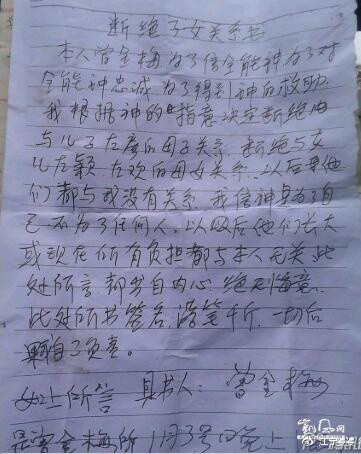 断绝子女关系书
本人曾金梅为了信全能神为了对
全能神忠诚为了得到神的救助
我根据神的指意决定断绝由
与儿子左唐的母子关系.断绝与女
儿左颖左欢的母女关系.以后里他
们都与我没有关系.我信神是为了自
己不为了任何人.以及后他们长大
或现在所有负担都与本人无关.此
处所言都出自内心绝不悔意.
此处所书签名.落笔千斤.一切后
果自己负责。
如上所言 具书人:曾金梅
是曾金梅所 1月3号 晚上